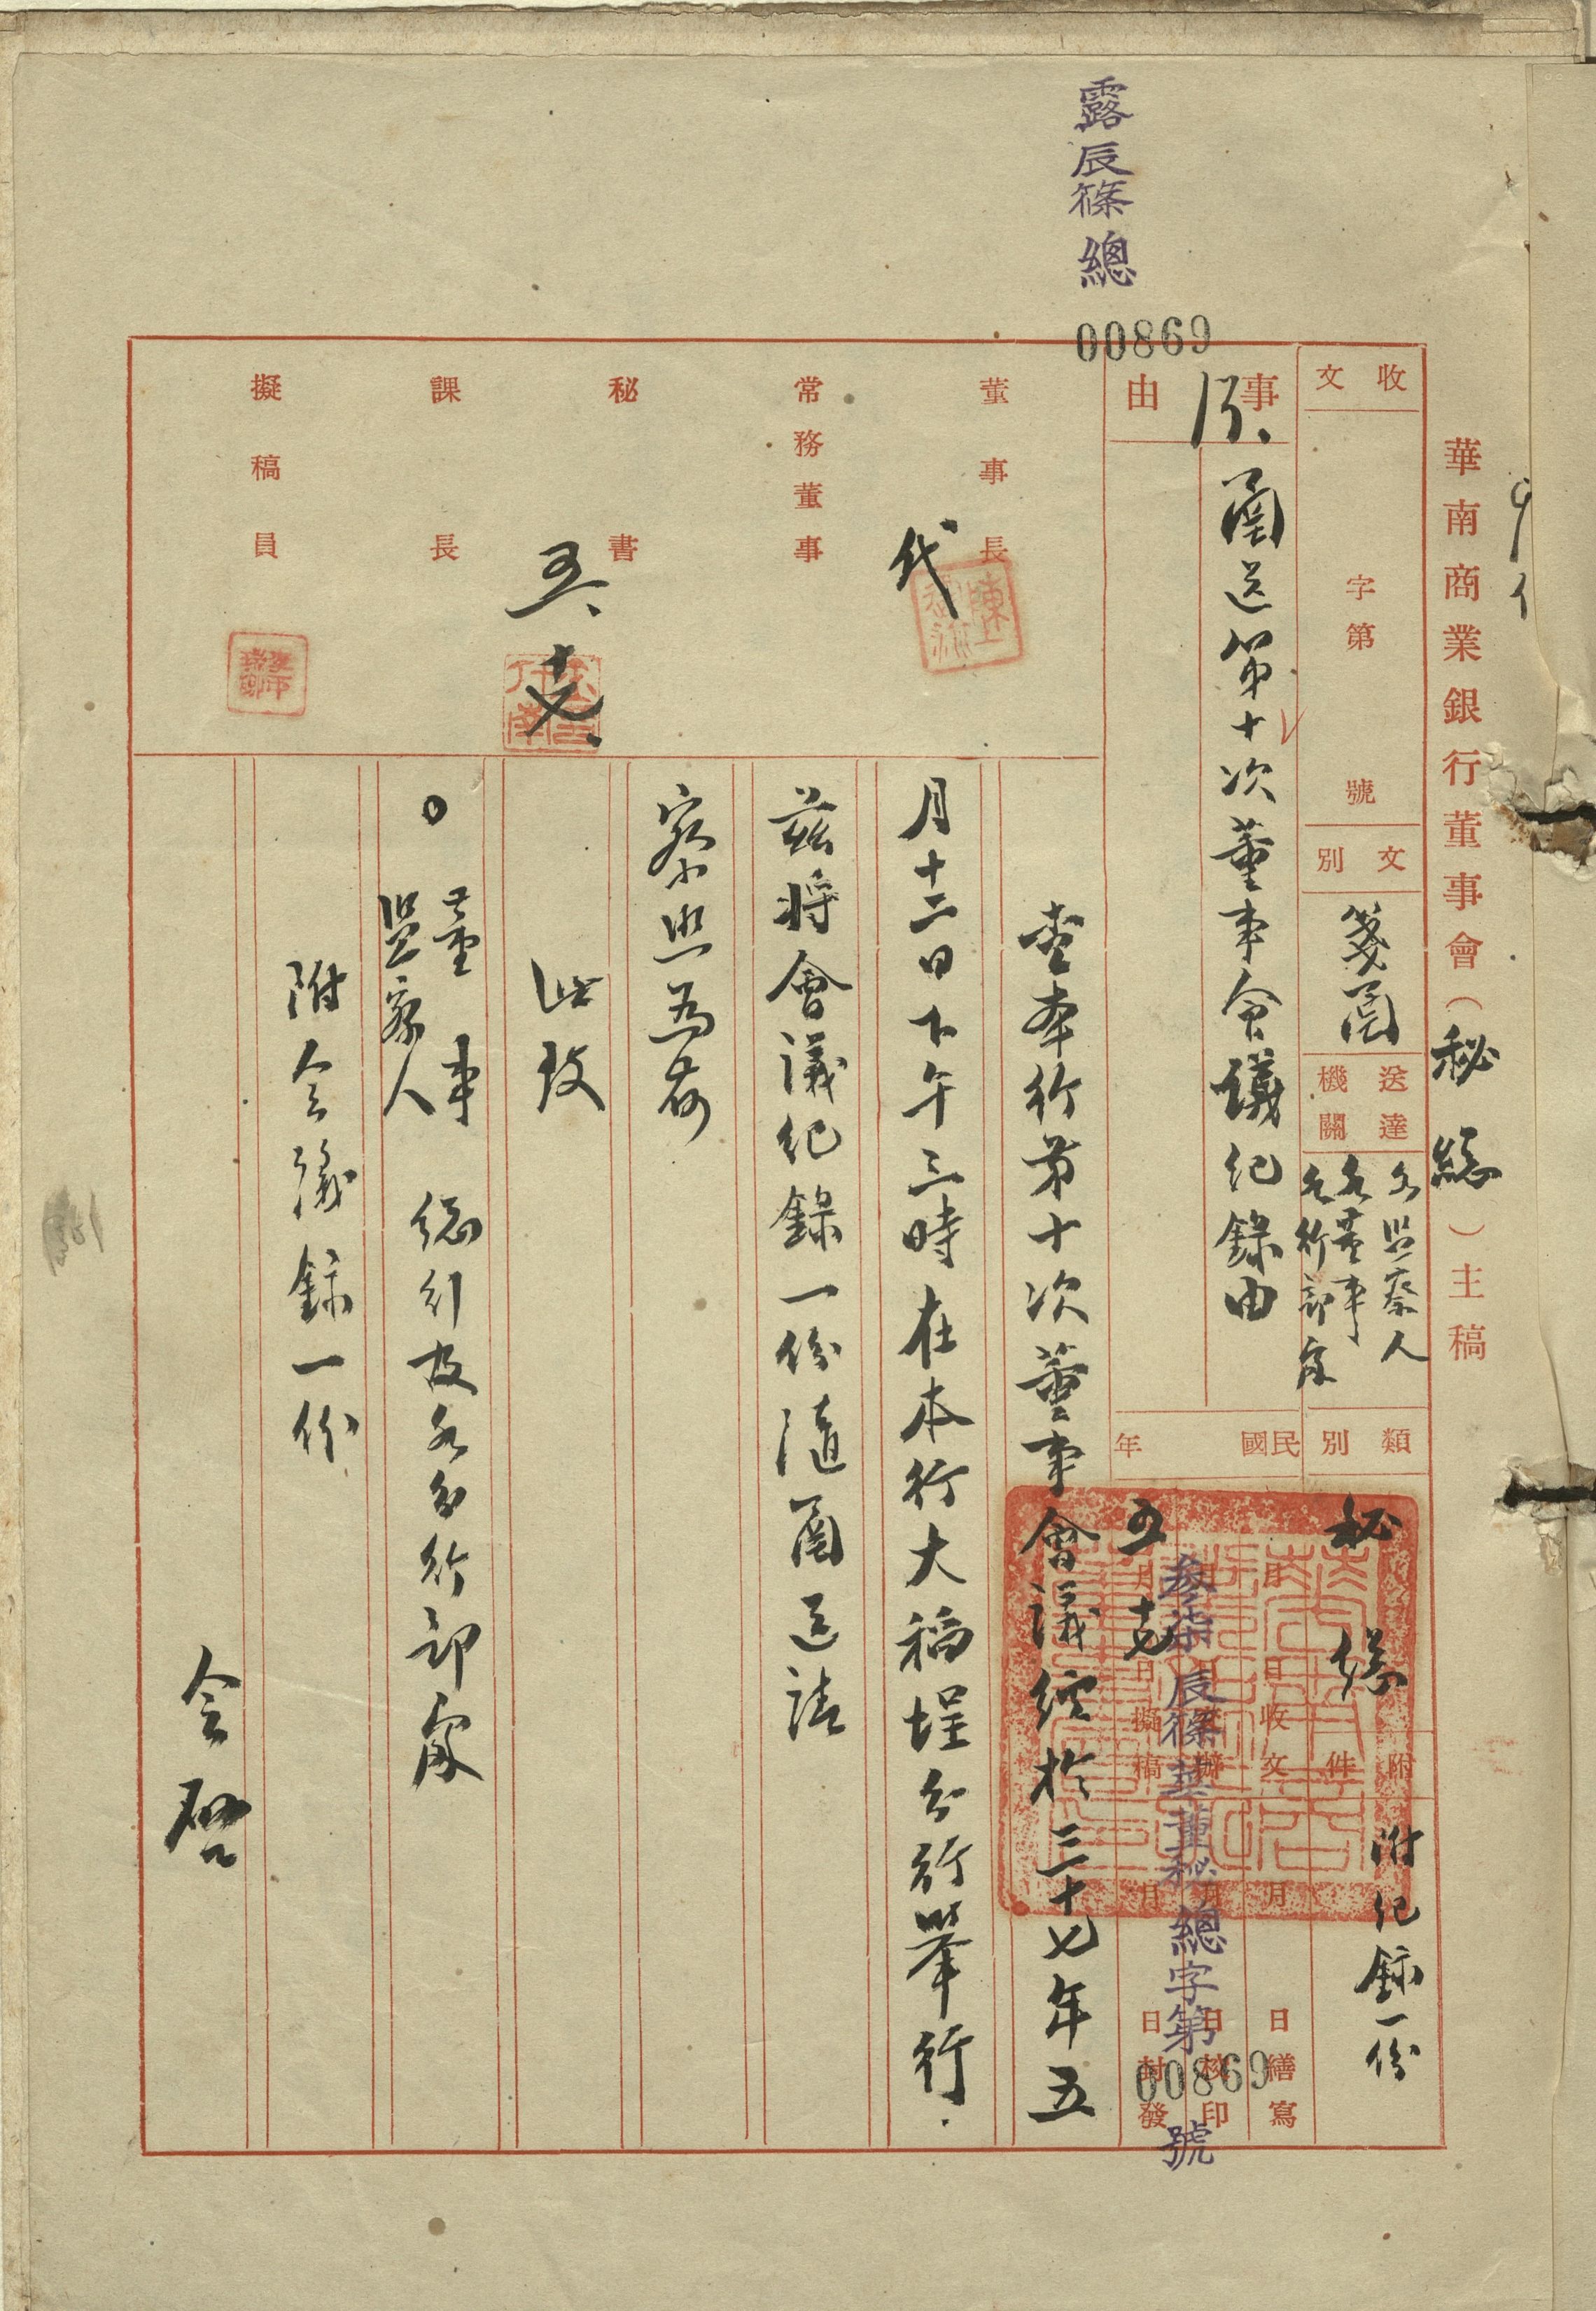 露辰篠總
00869
華南商業銀行董事會（秘總）主稿
收文
字第
號
文別
箋函
送達機關
各監察人
各董事
各行部處
類別
秘總
附件
附紀錄一份
事由
函送第十次董事會議紀錄由
民國
年
五
月
日收文
月
日擬辦
月
七
日擬稿
月
日繕寫
月
日校印
月
日封發
參柒辰篠華董秘總字第
00869
號
董事長
代
常務董事
秘書
五、
課長
擬稿員
查本行第十次董事會議經於三十七年五
月十二日下午三時在本行大稻埕分行舉行．
茲將會議紀錄一份隨函送請
察照為荷
此致
董事
監察人
總行及各分行部處
附會議錄一份
會啓